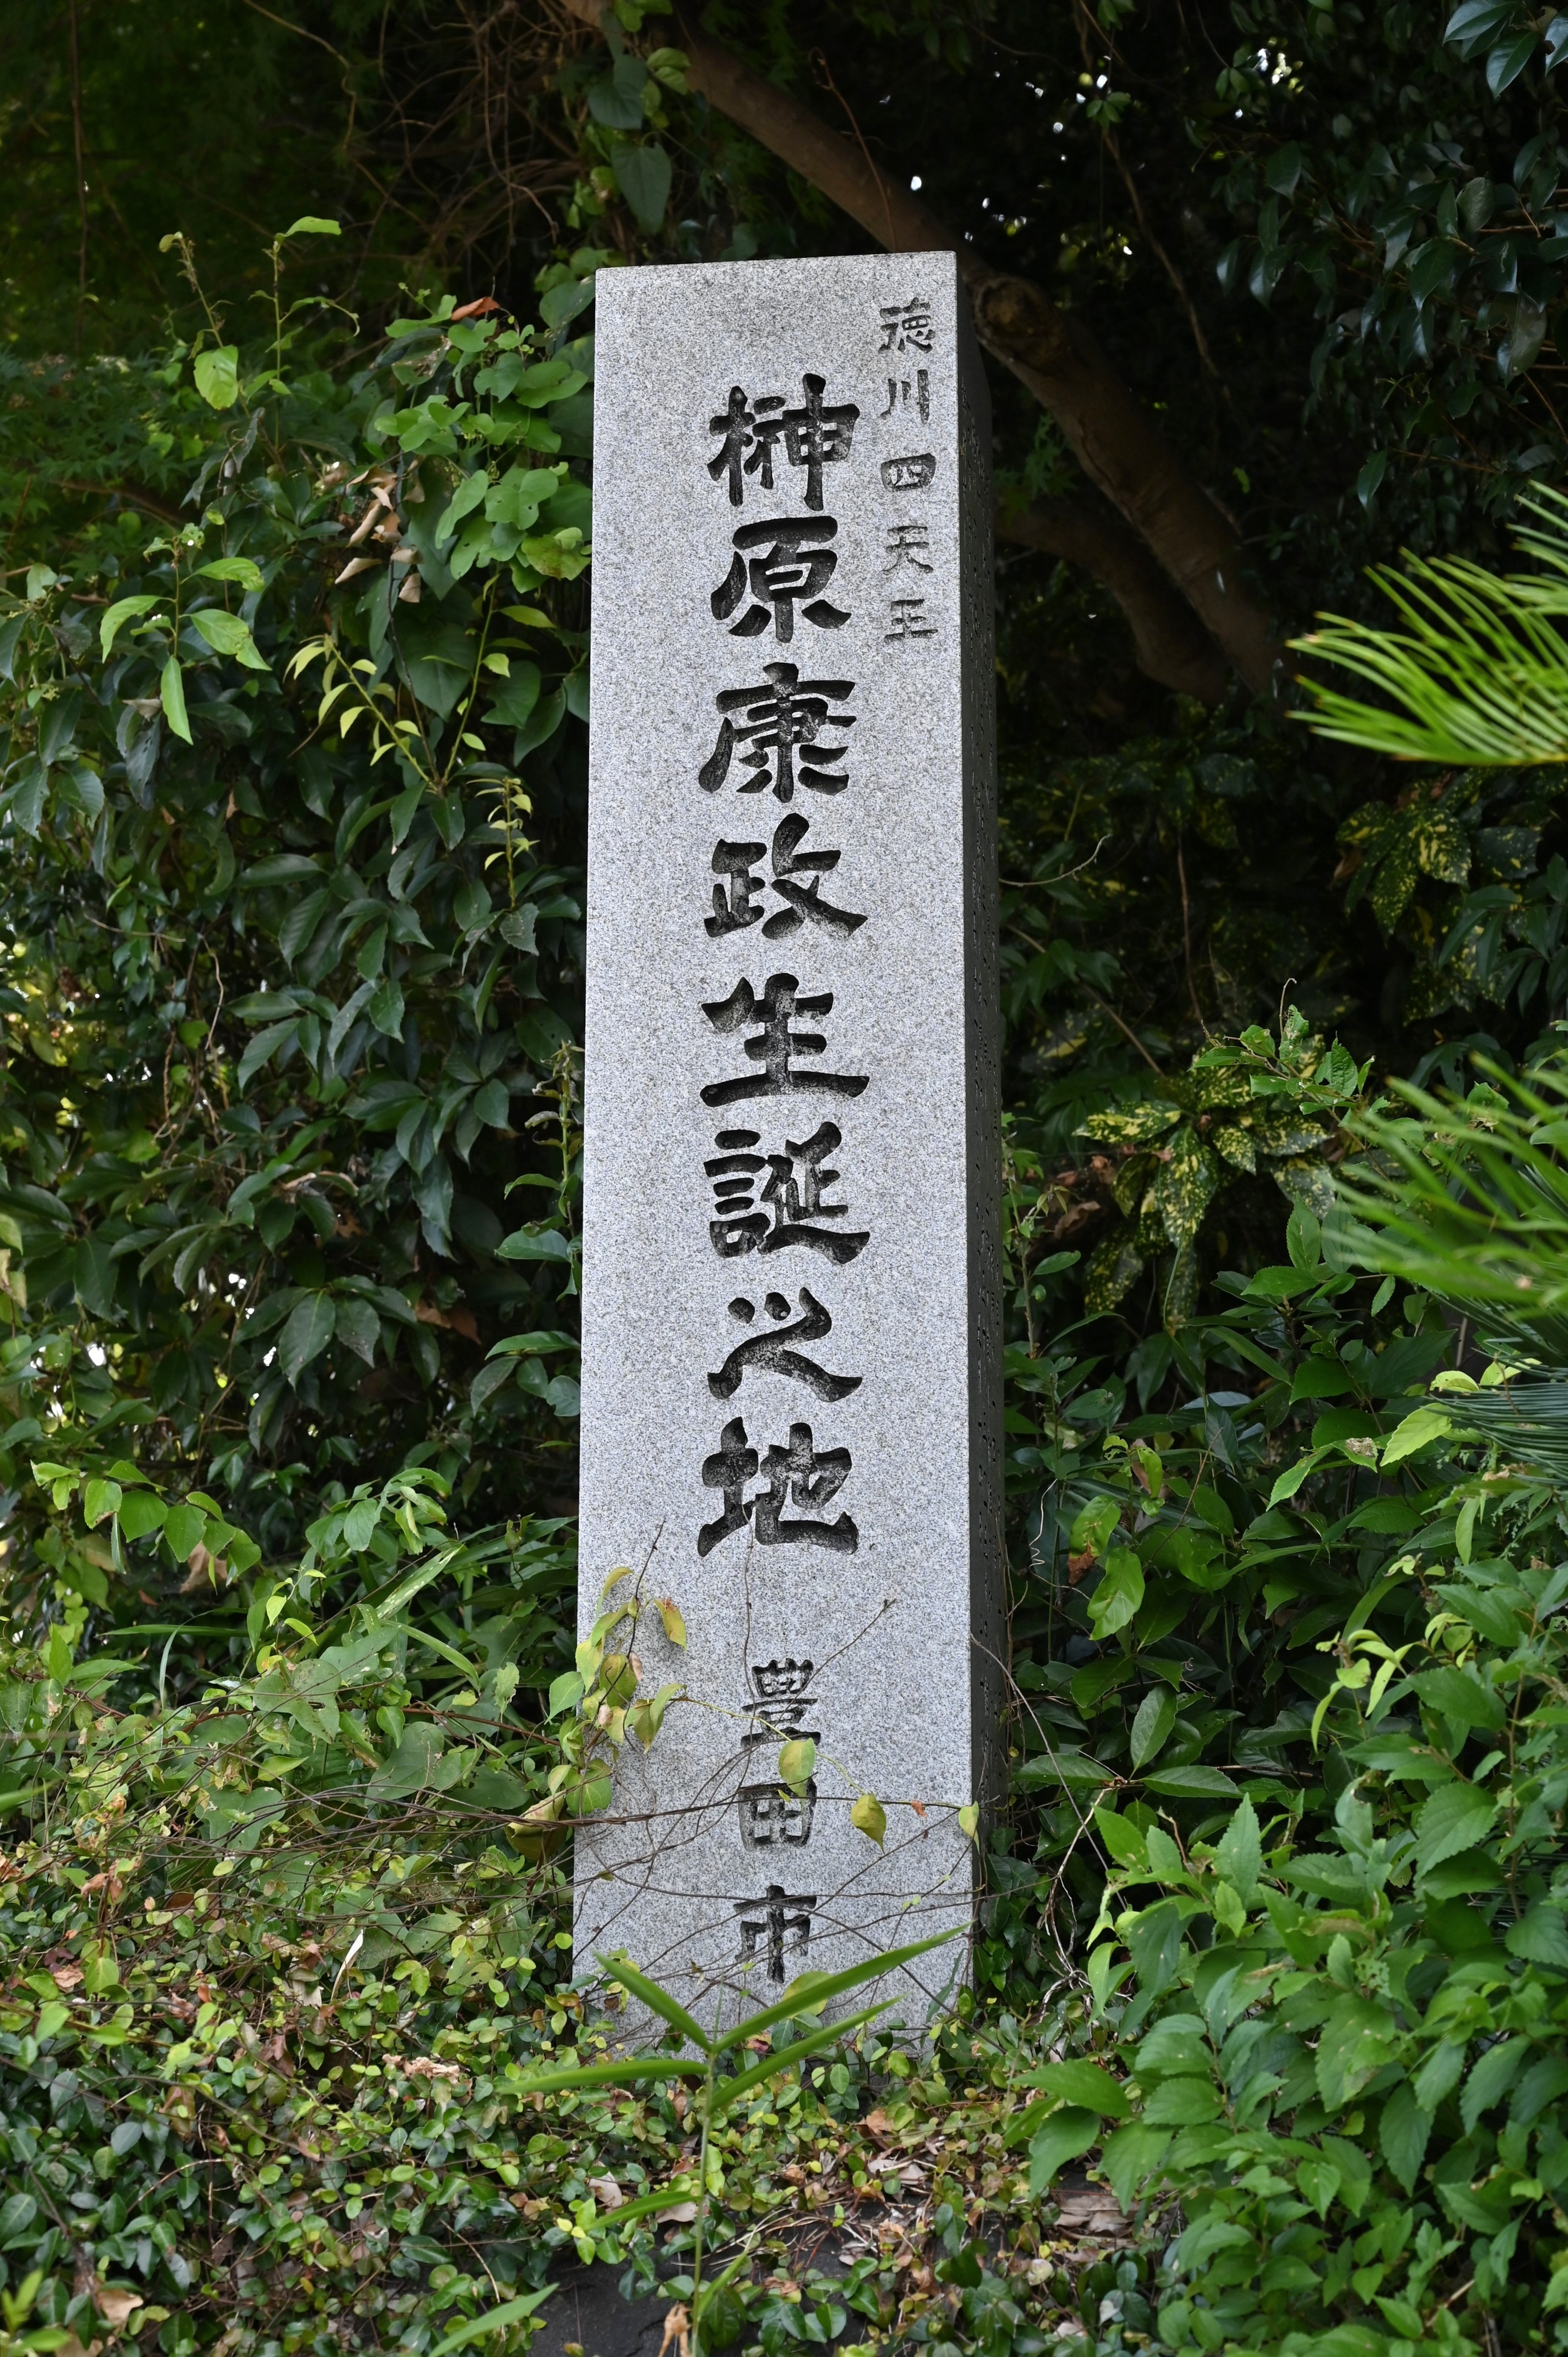 徳川四天王
榊原康政生誕之地
豊田市